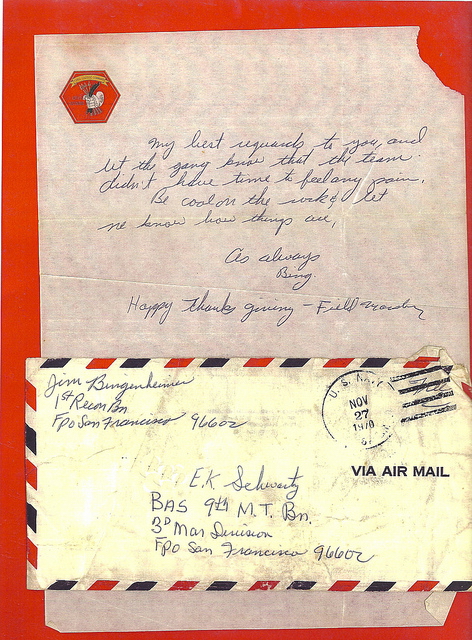 my best reguards to you, and
let the gang know that the team
didn't have time to feel any pain.
Be cool on the rocks & let
me know how things are,
As always
Bing.
Happy Thanks giving - Field
Jim Bingenheimer
1st Recon Bn
FPO San Francisco 96602
U.S. NAVY
NOV
27
1970
Free
VIA AIR MAIL
E.K Schwartz
BAS 9th M.T. Bn.
3D Mar Division
FPO San Francisco 96602